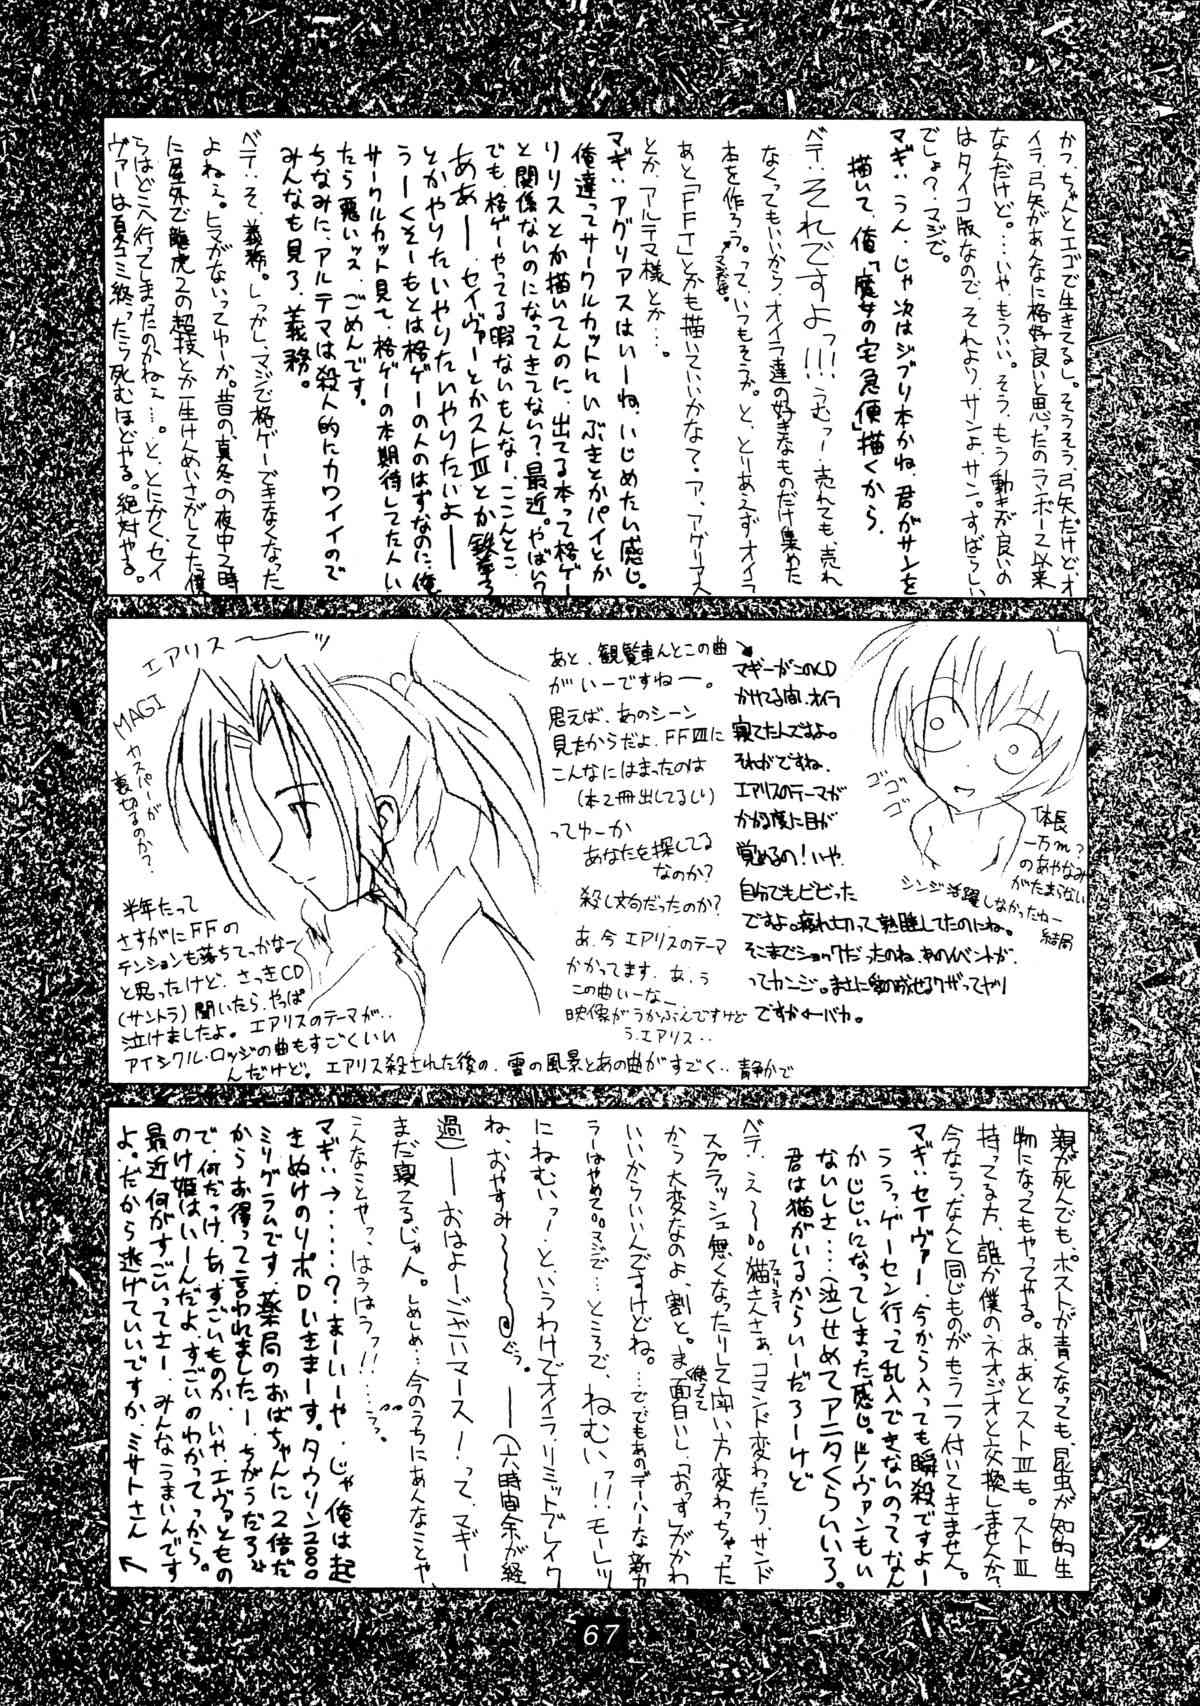 かつ、ちゃんとエゴで生きてるし。そうそう、弓矢だけどオ
イラ、弓矢があんなに格好良いと思ったのランボー2以来
なんだけど。…いや、もういい。そう、もう動きが良いの
はタイコ版なので、それより、サンよ、サン。すばらしい
でしょ？マジで。
マギ:うん。じゃ次はジブリ本かね、君がサンを
描いて、俺「魔女の宅急便」描くから。
ベテ:それですよっ!!!うむっー、売れても、売れ
なくってもいいから、オイラ達の好きなものだけ集めた
本を作ろう。って、いつもそうか。と、とりあえずオイラ
あと「FFT」とかも描いていいかなて。ア、アグリアス
とか、アルテマ様とか…。
マギ:アグリアスはいーね、いじめたい感じ。
俺達ってサークルカットにいぶきとかパイとか
リリスとか描いてんのに、出てる本って格ゲー
と関係ないのになってきてない？最近。やばい？
でも、格ゲーやってる暇ないもんなー、ここんとこ。
ああー、セイヴァーとかストⅢとか鉄拳3
とかやりたいやりたいやりたいよー
うーくそーもとは格ゲーの人のはずなのに俺
サークルカット見て、格ゲーの本期待してた人い
たら悪いッス、ごめんです。
ちなみに、アルテマは殺人的にカワイイので
みんなも見ろ、義務。
ベテ:そ、義務。しっかし、マジで格ゲーできなくなった
よねぇ。ヒマがないってゆーか。昔の、真冬の夜中2時
に屋外で龍虎2の超技とか一生けんめいさがしてた僕
らはどこへ行ってしまったのかねぇ…。と、とにかく、セイ
ヴァーは夏コミ終ったら死むほどやる。絶対やる。
体長
一万m？
のあやなみ
がたまらない
シンジ活躍しなかったねー
結局
ゴゴゴ
マギーがこのCD
かけてる間、オイラ
寝てたんですよ。
それがですね、
エアリスのテーマが
かかる度に目が
覚めるの！いや、
自分でもビビった
ですよ。疲れ切って熟睡してたのにね。
そこまでショックだったのね、あのイベントが、
ってカンジ。まさに愛の成せるワザってヤツ
ですか←バカ。
あと、観覧車んとこの曲
がいーですねー。
思えば、あのシーン
見たからだよ、FFⅦに
こんなにはまったのは
(本2冊出してるしり)
ってゆーか
あなたを探してる
なのか？
殺し文句だったのか？
あ、今エアリスのテーマ
かかってます。あ、う
この曲いーなー、
映像がうかぶんですけど
う、エアリス‥
エアリスーッ
MAGI
カスパーが
裏切るのか？
半年たって
さすがにFFの
テンションも落ちてっかなー
と思ったけど、さっきCD
(サントラ)聞いたら、やっぱ
泣けましたよ。エアリスのテーマが‥
アイシクル・ロッジの曲もすごくいい
んだけど。エアリス殺された後の、雪の風景とあの曲がすごく‥静かで
親が死んでも、ポストが青くなっても、昆虫が知的生
物になってもやってやる。あ、あとストⅢも。ストⅢ
持ってる方、誰か僕のネオジオと交換しませんか？
今なら、なんと同じものがもう一つ付いてきません。
マギ:セイヴァー、今から入っても瞬殺ですよー
ううっ、ゲーセン行って乱入できないのってなん
かじじいになってしまった感じ。ドノヴァンもい
ないしさ‥‥(泣)せめてアニタくらいいろ。
君は猫がいるからいーだろーけど
ベテ:え〜。猫さんさぁ、コマンド変わったり、サンド
スプラッシュ無くなったりして闘い方変わっちゃった
から大変なのよ、割と。ま、使ってて面白いし、「おっす」がかわ
いいからいいんですけどね。…ででもあのデハーな新キャ
ラーはやめて。マジで…ところで、ねむいっ!!モーレツ
にねむいっ！と、いうわけでオイラ、リミットブレイク
ね、おやすみ〜ぐぅ。――(六時間余が経
過)――おはよーございマース！って、マギー
まだ寝てるじゃん。しめしめ…今のうちにあんなことや、
こんなことやっ、はうはうっ!!…うっ。
マギ:→‥‥？まーいーや、じゃ俺は起
きぬけのリポDいきまーす。タウリン2000
ミリグラムです。薬局のおばちゃんに2倍だ
からお得って言われましたー。ちがうだろ。
で、何だっけ、あ、すごいものか、いや、エヴァともの
のけ姫はいーんだよ、すごいのわかってっから。
最近 何がすごいってさー、みんなうまいんです
よ。だから逃げていいですか、ミサトさん
67